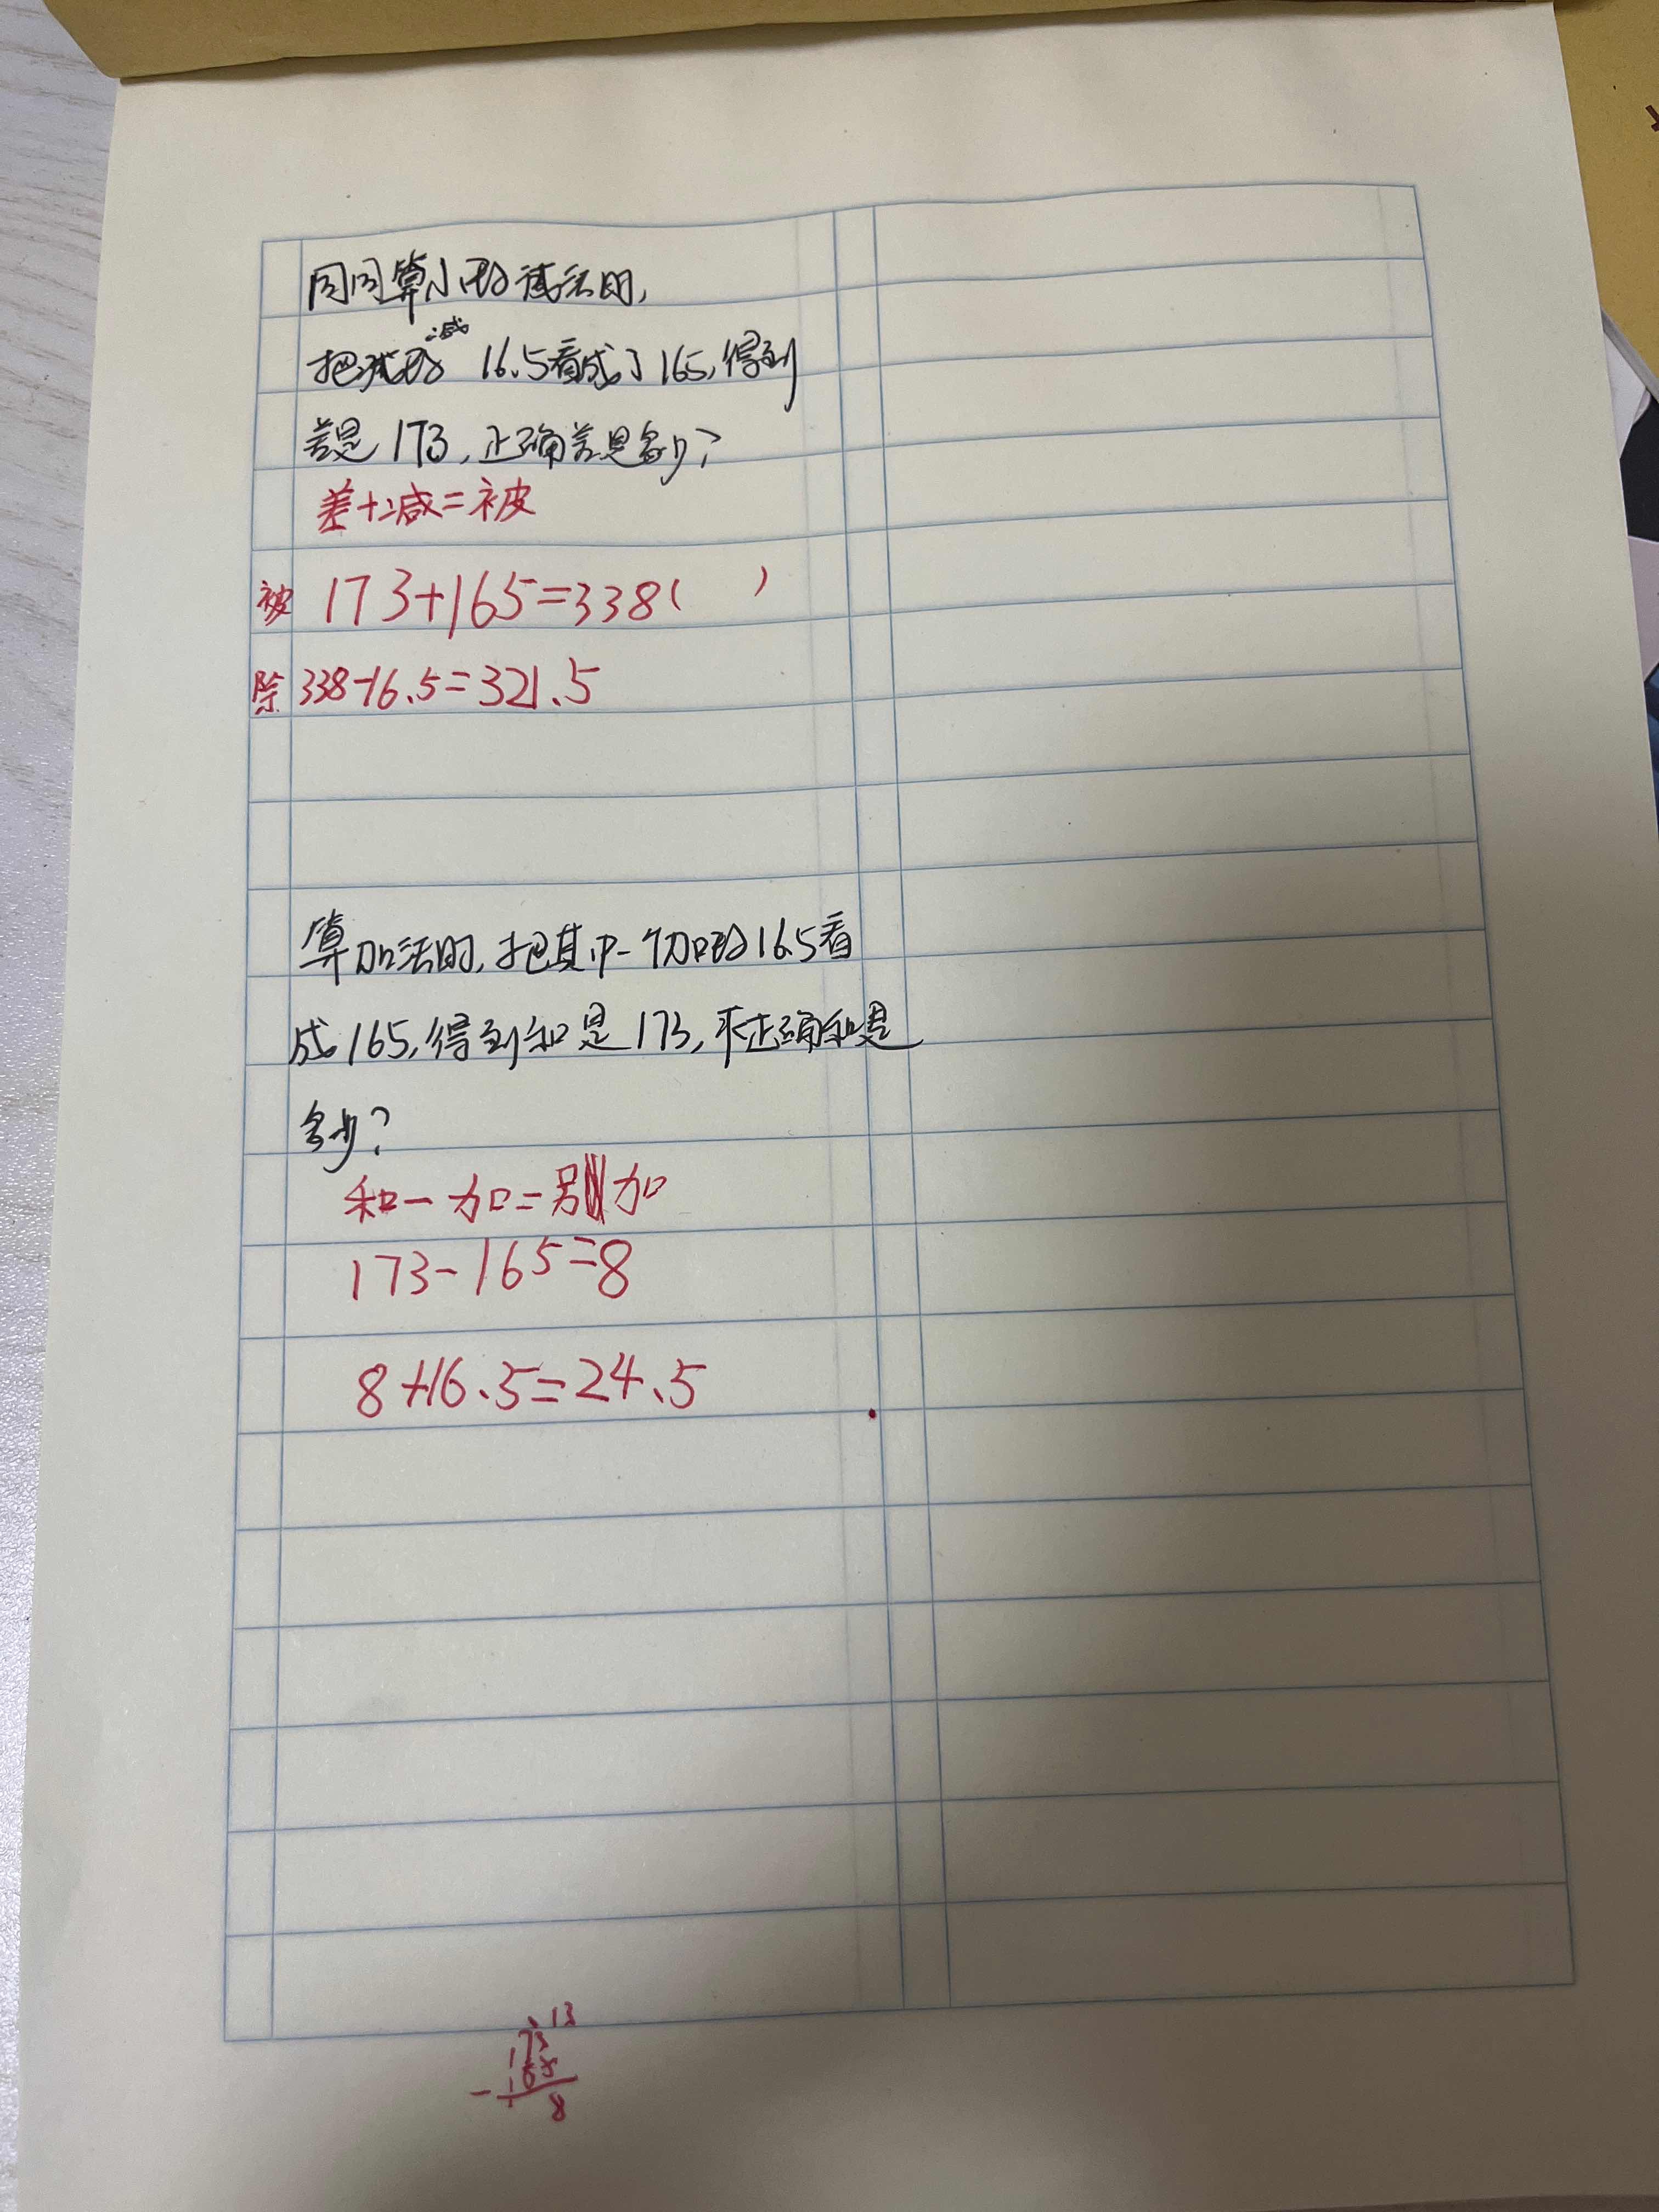 同同算小数减法时,
减
把减数 16.5看成了165,得到
差是 173,正确差是多少?
差+减=被
被 173+165=338( )
除 338-16.5=321.5
算加法时,把其中一个加数16.5看
成165,得到和是173,求正确和是
多少?
和-加=另加
173-165=8
8+16.5=24.5
13
173
-165
8